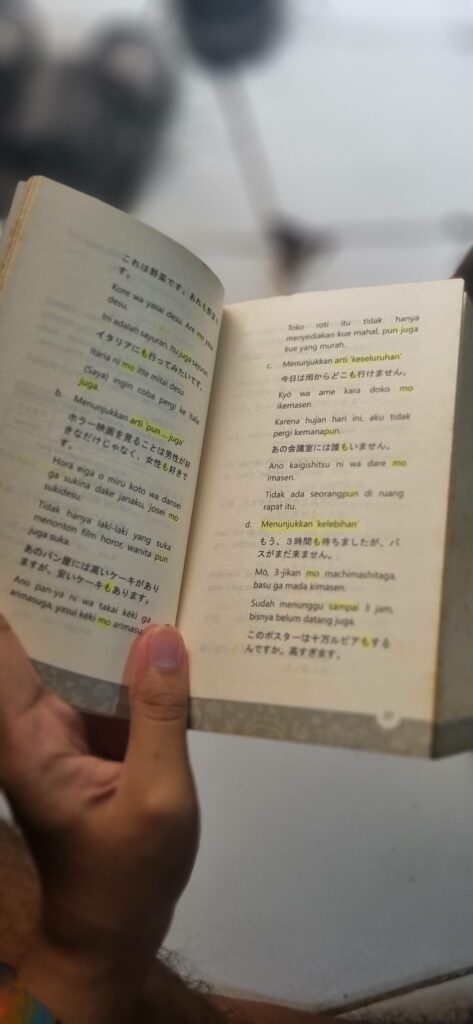 これは野菜です。あれも野菜で
す。
Kore wa yasai desu. Are mo yasai
desu.
Ini adalah sayuran. Itu juga sayuran.
イタリアにも行ってみたいです。
Itaria ni mo itte mitai desu.
(Saya) ingin coba pergi ke Italia
juga.
b. Menunjukkan arti 'pun ... juga'
ホラー映画を見ることは男性が好
きなだけじゃなく、女性も好きで
す。
Horā eiga o miru koto wa dansei
ga sukina dake janaku, josei mo
sukidesu.
Tidak hanya laki-laki yang suka
menonton film horor, wanita pun
juga suka.
あのパン屋には高いケーキがあり
ますが、安いケーキもあります。
Ano pan-ya ni wa takai kēki ga
arimasuga, yasui kēki mo arimasu.
Toko roti itu tidak hanya
menyediakan kue mahal, pun juga
kue yang murah.
c. Menunjukkan arti 'keseluruhan'
今日は雨からどこも行けません。
Kyō wa ame kara doko mo
ikemasen.
Karena hujan hari ini, aku tidak
pergi kemanapun.
あの会議室には誰もいません。
Ano kaigishitsu ni wa dare mo
imasen.
Tidak ada seorangpun di ruang
rapat itu.
d. Menunjukkan 'kelebihan'
もう、3時間も待ちましたが、バ
スがまだ来ません。
Mō, 3-jikan mo machimashitaga,
basu ga mada kimasen.
Sudah menunggu sampai 3 jam,
bisnya belum datang juga.
このポスターは十万ルピアもする
んですか。高すぎます。